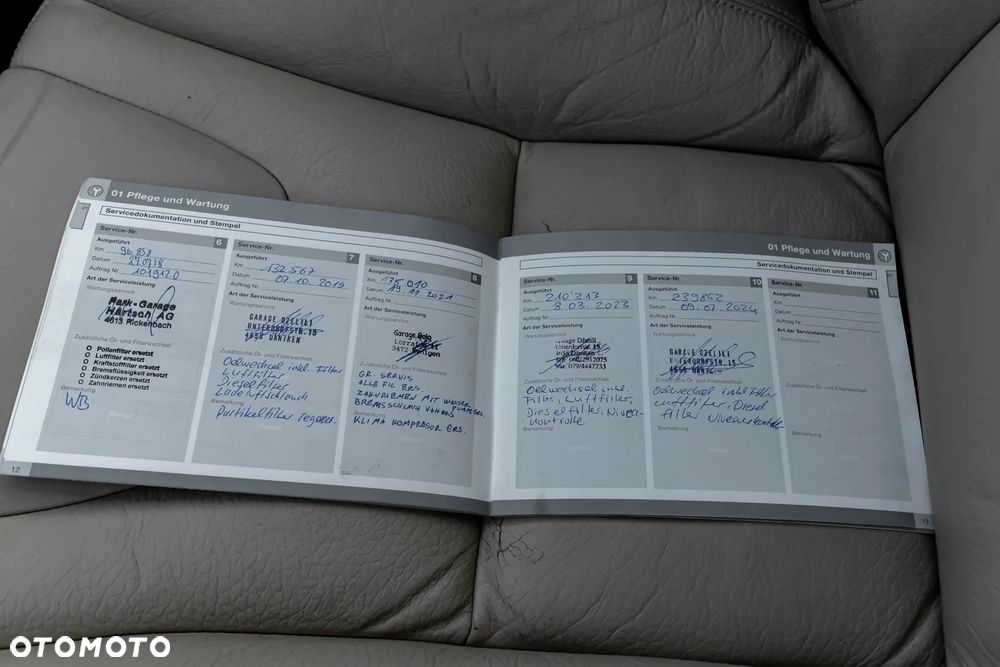 01 Pflege und Wartung
Servicedokumentation und Stempel
Service-Nr. 6
Ausgeführt
Km 96 858
Datum
Auftrag Nr. 1019120
Art der Serviceleistung
Wartungsservice
Park-Garage
Härtsan AG
4613 Rickenbach
Zusätzliche Öl- und Filterwechsel
O Pollenfilter ersetzt
O Luftfilter ersetzt
O Kraftstofffilter ersetzt
O Bremsflüssigkeit ersetzt
O Zündkerzen ersetzt
O Zahnriemen ersetzt
Bemerkung
WB
12
Service-Nr. 7
Ausgeführt
Km 132 567
Datum 07.10.2019
Auftrag Nr.
Art der Serviceleistung
Wartungsservice
GARAGE DZELILI
UNTERDORFSTR.15
4658 DÄNIKEN
Zusätzliche Öl- und Filterwechsel
Oelwechsel inkl. Filter
Luftfilter
Dieselfilter
Ladeluftschlauch
Bemerkung
Partikelfilter
Service-Nr. 8
Ausgeführt
Km 175 010
Datum 19.11.2021
Auftrag Nr.
Art der Serviceleistung
Wartungsservice
Garage
3472
Zusätzliche Öl- und Filterwechsel
GR. SERVIS
ALLE FIL ERS.
ZAHNRIEMEN MIT WASSER PUMPE ERS.
BREMSSCHEIBEN
Bemerkung
KLIMA KOMPRESOR ERS.
01 Pflege und Wartung
Servicedokumentation und Stempel
Service-Nr. 9
Ausgeführt
Km 210'213
Datum 8 03. 2023
Auftrag Nr.
Art der Serviceleistung
Wartungsservice
Garage Dzelili
Unterdorfstr. 15
4658 Däniken
062 2912075
Nat. 079/4447733
Zusätzliche Öl- und Filterwechsel
Oelwechsel inkl.
Filter, Luftfilter,
Dieselfilter, Niveau-
kontrolle
Bemerkung
Service-Nr. 10
Ausgeführt
Km 239852
Datum 09.07.2024
Auftrag Nr.
Art der Serviceleistung
Wartungsservice
GARAGE DZELILI
UNTERDORFSTR.15
4658 DÄNIKEN
Zusätzliche Öl- und Filterwechsel
Oelwechsel inkl Filter
Luftfilter, Diesel
filter Niveaukontrolle
Bemerkung
Service-Nr. 11
Ausgeführt
Km
Datum
Auftrag Nr.
Art der Serviceleistung
Wartungsservice
Zusätzliche Öl- und Filterwechsel
Bemerkung
13
OTOMOTO